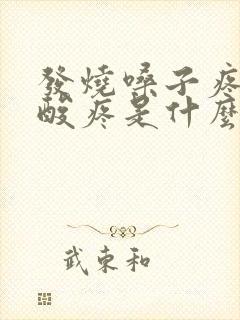 發燒嗓子疼
酸疼是什麼
武東和